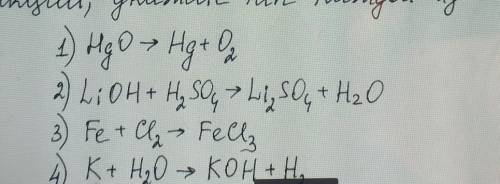 1) HgO → Hg + O₂
2) LiOH + H₂SO₄ → Li₂SO₄ + H₂O
3) Fe + Cl₂ → FeCl₃
4) K + H₂O → KOH + H₂